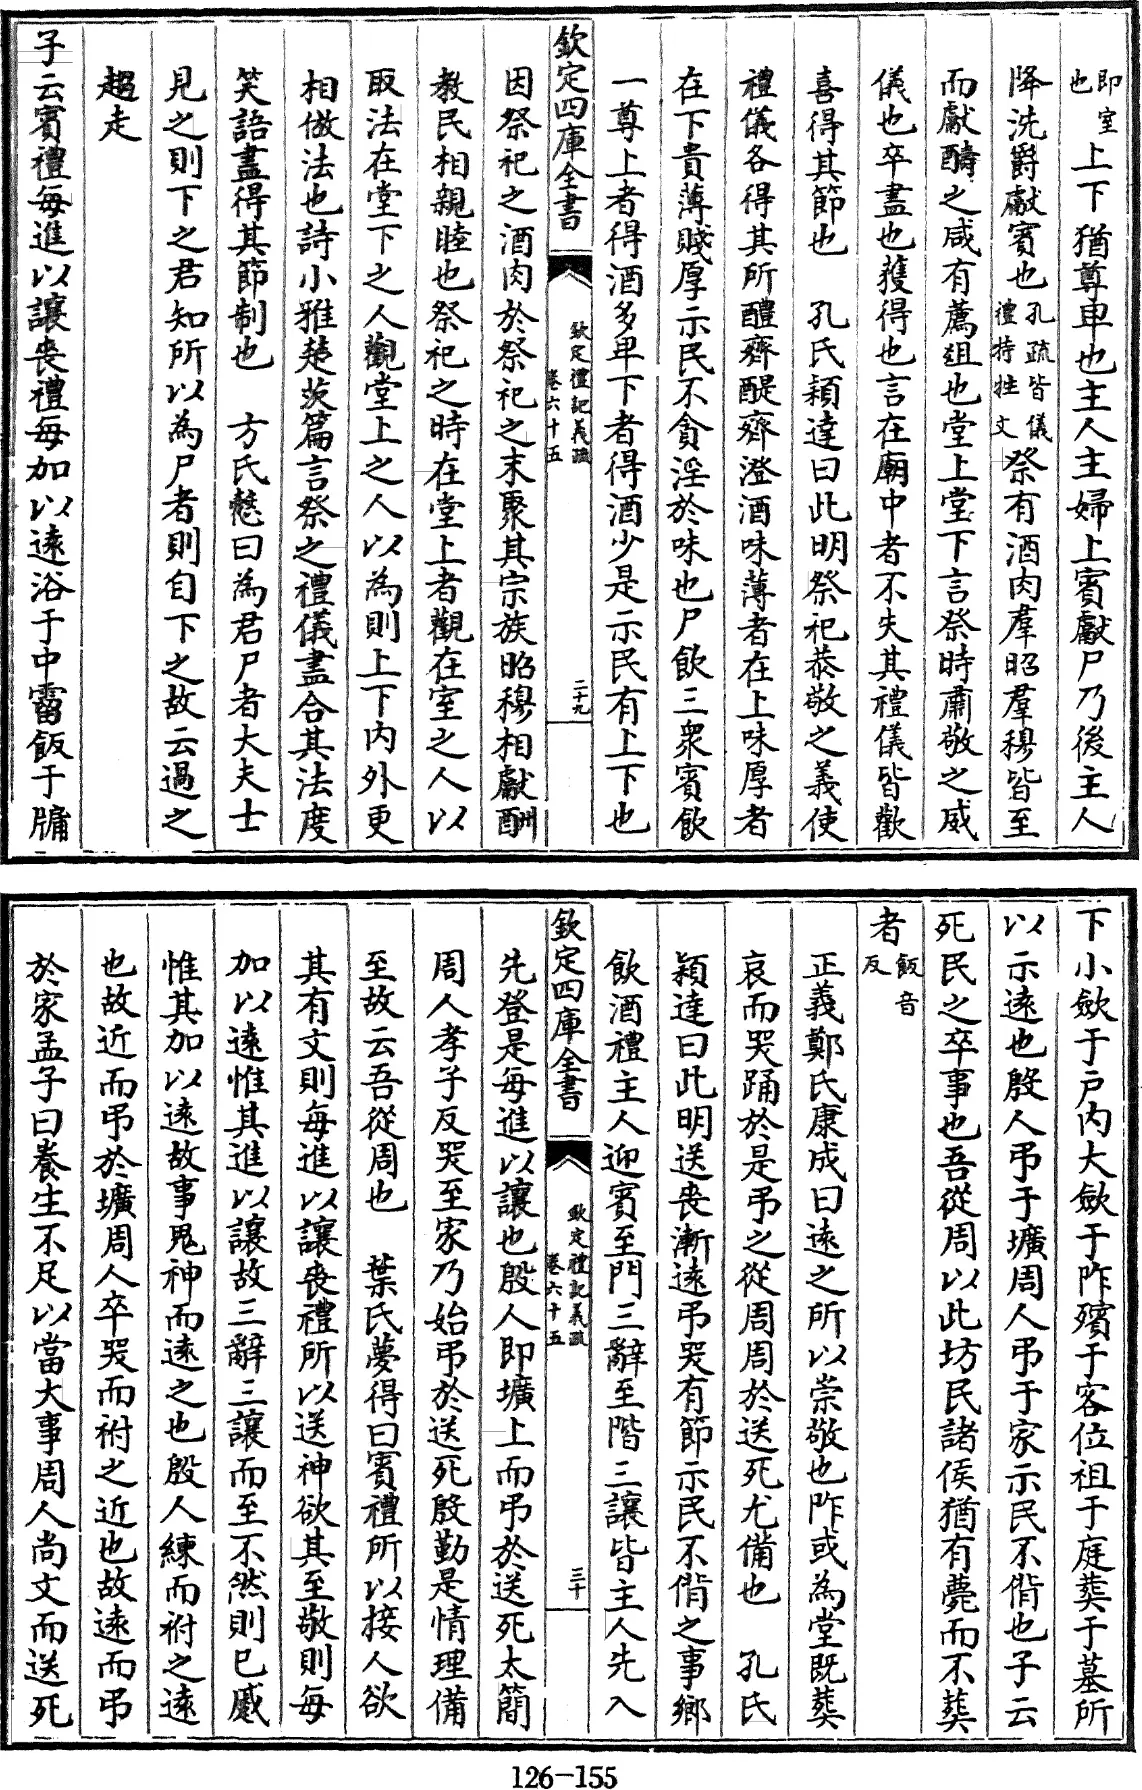 即室也上下猶尊卑也主人主婦上賓獻尸乃後主人
降洗爵獻賓也孔疏皆儀禮特牲文祭有酒肉羣昭羣穆皆至
而獻酬之咸有薦俎也堂上堂下言祭時肅敬之威
儀也卒盡也獲得也言在廟中者不失其禮儀皆歡
喜得其節也　孔氏穎達曰此明祭祀恭敬之義使
禮儀各得其所醴齊醍齊澄酒味薄者在上味厚者
在下貴薄賤厚示民不貪淫於味也尸飲三衆賓飲
一尊上者得酒多卑下者得酒少是示民有上下也
欽定四庫全書　欽定禮記義疏卷六十五　二十九
因祭祀之酒肉於祭祀之末聚其宗族昭穆相獻酬
教民相親睦也祭祀之時在堂上者觀在室之人以
取法在堂下之人觀堂上之人以為則上下內外更
相倣法也詩小雅楚茨篇言祭之禮儀盡合其法度
笑語盡得其節制也　方氏慤曰為君尸者大夫士
見之則下之君知所以為尸者則自下之故云過之
趨走
子云賓禮每進以讓喪禮每加以遠浴于中霤飯于牖
下小歛于戶內大歛于阼殯于客位祖于庭葬于墓所
以示遠也殷人弔于壙周人弔于家示民不偝也子云
死民之卒事也吾從周以此坊民諸侯猶有薨而不葬
者飯音反
正義鄭氏康成曰遠之所以崇敬也阼或為堂既葬
哀而哭踊於是弔之從周周於送死尤備也　孔氏
穎達曰此明送喪漸遠弔哭有節示民不偝之事鄉
飲酒禮主人迎賓至門三辭至階三讓皆主人先入
欽定四庫全書　欽定禮記義疏卷六十五　三十
先登是每進以讓也殷人即壙上而弔於送死太簡
周人孝子反哭至家乃始弔於送死殷勤是情理備
至故云吾從周也　葉氏夢得曰賓禮所以接人欲
其有文則每進以讓喪禮所以送神欲其至敬則每
加以遠惟其進以讓故三辭三讓而至不然則已蹙
惟其加以遠故事鬼神而遠之也殷人練而祔之遠
也故近而弔於壙周人卒哭而祔之近也故遠而弔
於家孟子曰養生不足以當大事周人尚文而送死
126-155